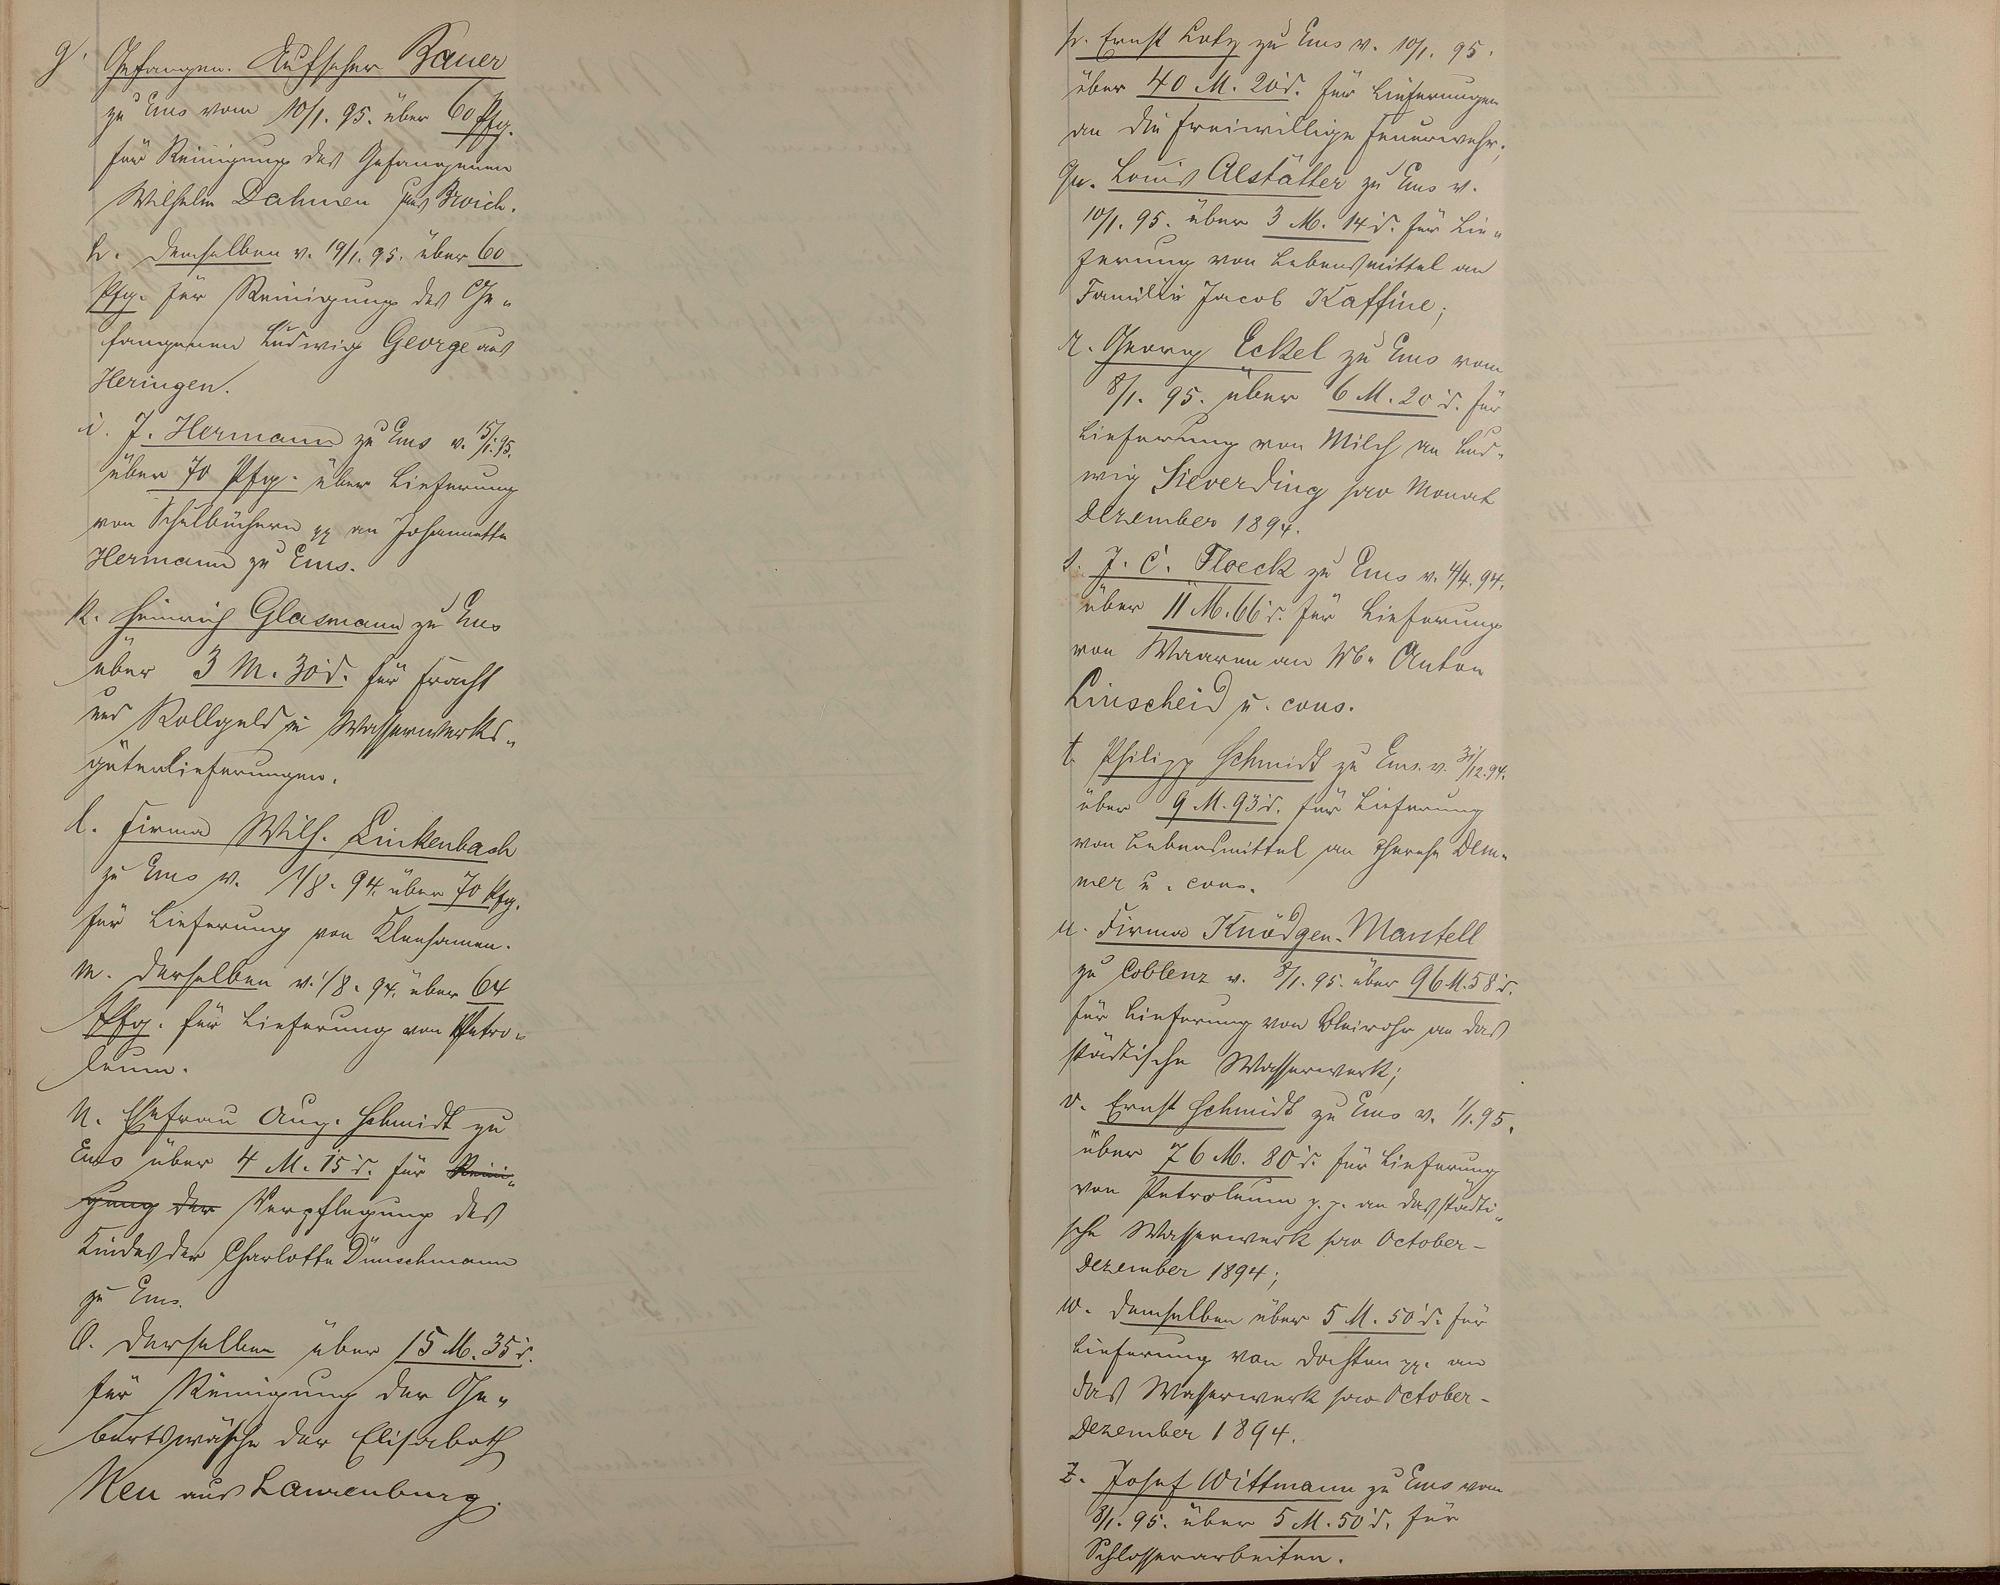 g. Gefangen. Aufseher Bauer
zu Ems vom 10/1. 95. über 60 Pfg.
für Reinigung des Gefangenen
Wilhelm Dahmen aus Broich.
h. demselben v. 19/1. 95. über 60
Pfg. für Reinigung des Ge-
fangenen Ludwig George aus
Heringen.
i. J. Hermann zu Ems v. 15/1. 95.
über 70 Pfg. über Lieferung
von Schulbüchern pp an Johannette
Hermann zu Ems.
k. Heinrich Glasmann zu Ems
über 3 M. 30 d. für Fracht
und Rollgeld zu Wasserwerks-
güterlieferungen.
l. Firma Wilh. Linkenbach
zu Ems v. 1/8. 94. über 70 Pfg.
für Lieferung von Kleesamen.
m. derselben v. 1/8. 94. über 64
Pfg. für Lieferung von Petro-
leum.
n. Ehefrau Aug. Schmidt zu
Ems über 4 M. 15 d. für Reini-
gung der Verpflegung des
Kindes der Charlotte Dünschmann
zu Ems.
o. derselben über 15 M. 35 d.
für Reinigung der Ge-
burtswäsche der Elisabeth
Neu aus Laurenburg.
p. Ernst Lotz zu Ems v. 10/1. 95.
über 40 M. 20 d. für Lieferungen
an die freiwillige Feuerwehr;
qu. Louis Alstätter zu Ems v.
10/1. 95. über 3 M. 14 d. für Lie-
ferung von Lebensmittel an
Familie Jacob Kaffine;
r. Georg Eckel zu Ems vom
8/1. 95. über 6 M. 20 d. für
Lieferung von Milch an Lud-
wig Sieverding pro Monat
Dezember 1894.
s. J. C. Floeck zu Ems v. 4/4. 94.
über 11 M. 66 d. für Lieferung
von Waaren an Wb. Anton
Linscheid u. cons.
t. Philipp Schmidt zu Ems v. 31/12. 94.
über 9 M. 93 d. für Lieferung
von Lebensmittel an Therese Dem-
mer u. cons.
u. Firma Knödgen-Mantell
zu Coblenz v. 8/1. 95. über 96 M. 58 d.
für Lieferung von Bleirohr an das
städtische Wasserwerk;
v. Ernst Schmidt zu Ems v. 1/1. 95.
über 76 M. 80 d. für Lieferung
von Petroleum p. p. an das städti-
sche Wasserwerk pro October-
Dezember 1894;
w. demselben über 5 M. 50 d. für
Lieferung von Dochten pp. an
das Wasserwerk pro October-
Dezember 1894.
z. Josef Wittmann zu Ems vom
8/1. 95. über 5 M. 50 d. für
Schlosserarbeiten.